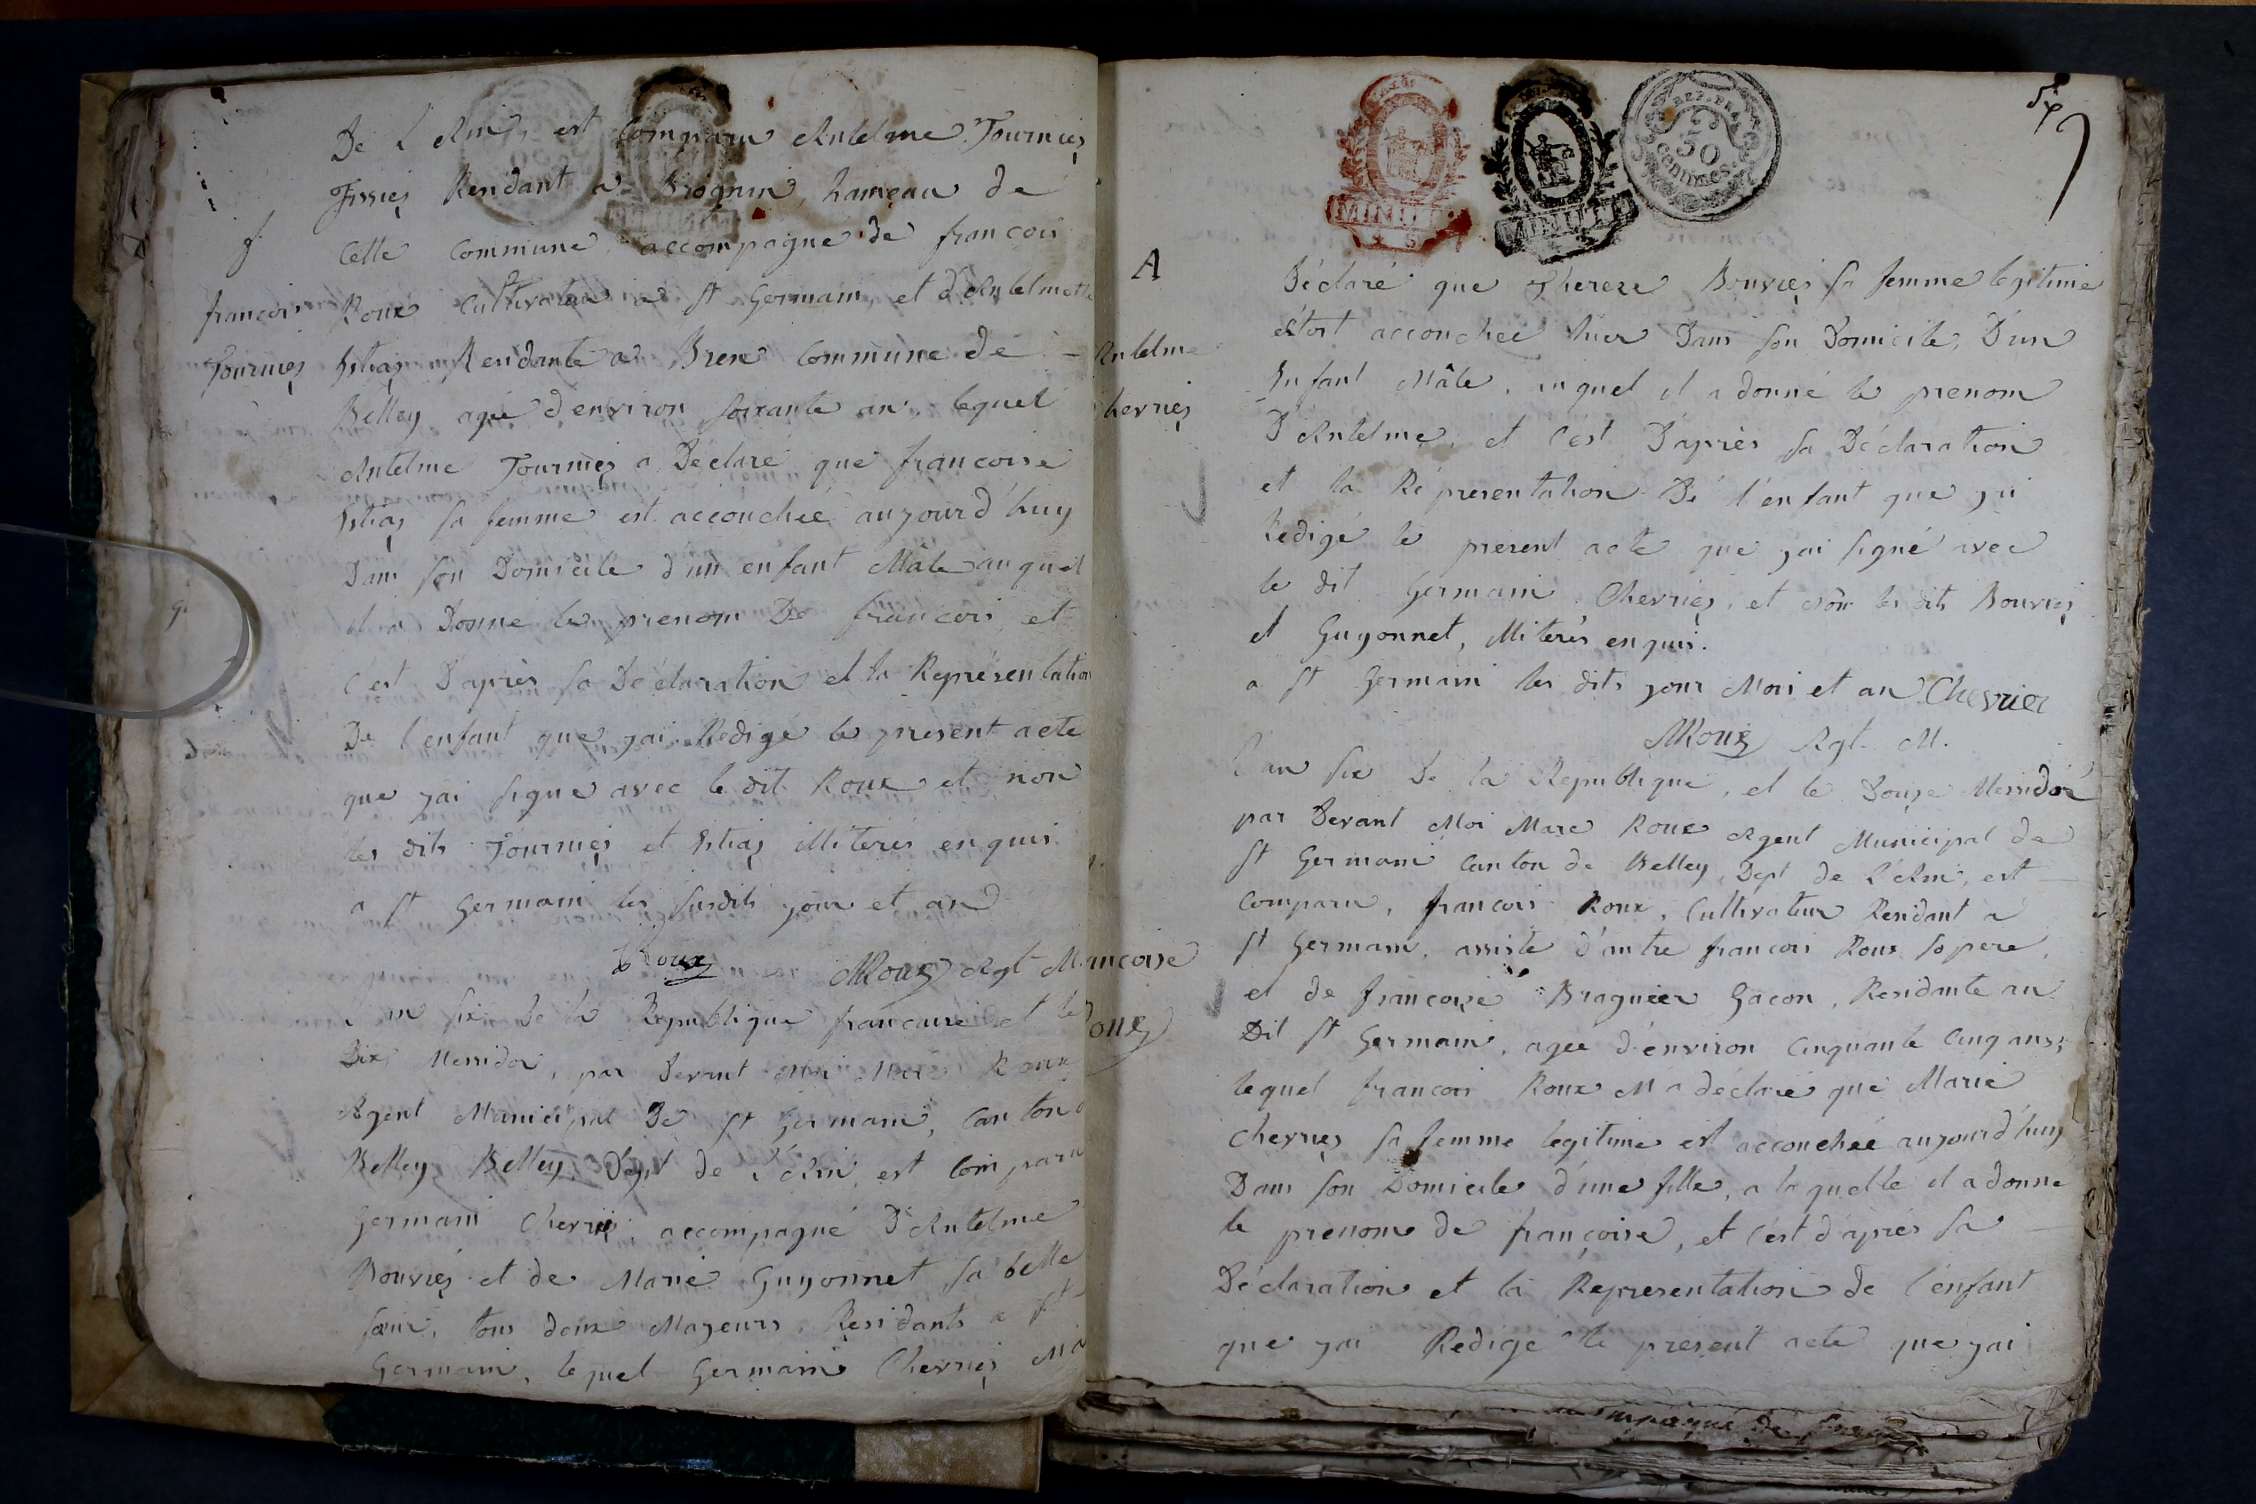 De L'Ain, est Comparu Antelme Tournier
Tissier Residant a Brognin, hameau de
Cette Commune, accompagné de francois
Roux Cultivateur a St Germain, et d'Antelmette
Residante a Bren Commune de -
Belley agée d'environ soixante an. lequel
Antelme Tournier a Déclaré que francoise
sa femme est accouchée aujourd'huy
Dans son Domicile d'un enfant Mâle auquel
il a Donné le prenom De francois, et
C'est D'après sa Déclaration et la Représentation
De l'enfant que j'ai Redigé le present acte
que j'ai signé avec le dit Roux et non
les dits Tournier et illiterés enquis.
a St Germain les susdits jour et an
Roux MRoux Agt M.
L'an six De la Republique francaise et le
Dix Messidor, par Devant Moi Marc Roux
Agent Municipal De St Germain, Canton
Belley Belley, Dept de L'Ain, est Comparu
Germain Chevrier, accompagné D'Antelme
Bouvier et de Marie Guyonnet sa belle
sœur, tous deux Majeurs, Residants a St
Germain, lequel Germain Chevrier M'a
f.
francois
Tournier
9.
six
7
MINUTE
MINUTE
REP. FRA.
50
centimes.
A
Antelme
Chevrier
Déclaré que Therese Bouvier sa femme legitime
étoit accouchée hier Dans son Domicile, D'un
Enfant Mâle, auquel il a donné le prenom
D'Antelme, et c'est D'après sa Déclaration
et la Répresentation De l'enfant que j'ai
Redigé le present acte que j'ai signé avec
le dit Germain Chevrier, et non les dits Bouvier
et Guyonnet, illiterés enquis.
a St Germain les dits jour Mois et an Chevrier
MRoux Agt. M.
francoise
Roux
L'an six De la Republique, et le Douze Messidor
par Devant Moi Marc Roux Agent Municipal de
St Germain Canton de Belley, Dept de L'Ain, est
Comparu, francois Roux, Cultivateur Residant a
St Germain, assisté d'autre francois Roux so pere,
et de francoise Braguier Gacon, Residante au
Dit St Germain, agée d'environ Cinquante Cinq ans,
lequel francois Roux M'a déclaré que Marie
Chevrier sa femme legitime est accouchée aujourd'huy
Dans son Domicile d'une fille, a laquelle il a donné
le prenom de françoise, et c'est d'après sa
Déclaration et la Representation de l'enfant
que j'ai Redigé le present acte que j'ai